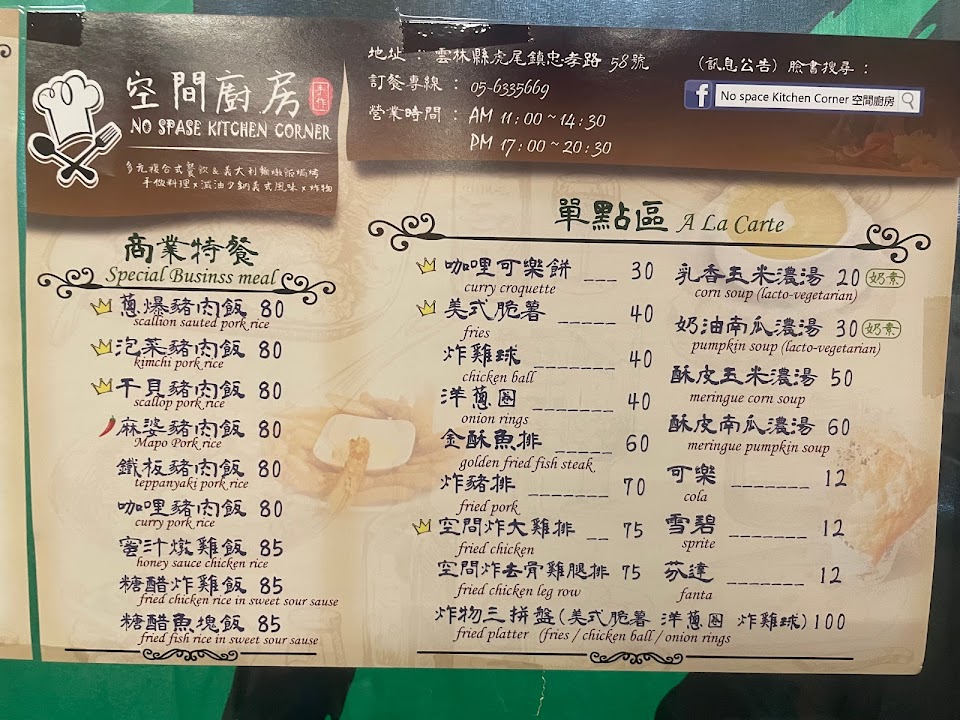 空間廚房 手作
NO SPASE KITCHEN CORNER
多元複合式餐飲 & 義大利麵燉飯焗烤
手做料理 x 減油少鈉美式風味 x 炸物
地址 : 雲林縣虎尾鎮忠孝路 58號
訂餐專線 : 05-6335669
營業時間 : AM 11:00~14:30
PM 17:00~20:30
(訊息公告) 臉書搜尋 :
f No space Kitchen Corner 空間廚房
商業特餐
Special Businss meal
蔥爆豬肉飯 80
scallion sauted pork rice
泡菜豬肉飯 80
kimchi pork rice
干貝豬肉飯 80
scallop pork rice
麻婆豬肉飯 80
Mapo Pork rice
鐵板豬肉飯 80
teppanyaki pork rice
咖哩豬肉飯 80
curry pork rice
蜜汁燉雞飯 85
honey sauce chicken rice
糖醋炸雞飯 85
fried chicken rice in sweet sour sause
糖醋魚塊飯 85
fried fish rice in sweet sour sause
單點區 A La Carte
咖哩可樂餅 ___ 30
curry croquette
美式脆薯 ______ 40
fries
炸雞球 ________ 40
chicken ball
洋蔥圈 ________ 40
onion rings
金酥魚排 ______ 60
golden fried fish steak
炸豬排 ________ 70
fried pork
空間炸大雞排 __ 75
fried chicken
空間炸去骨雞腿排 75
fried chicken leg row
炸物三拼盤(美式脆薯 洋蔥圈 炸雞球)100
fried platter (fries / chicken ball / onion rings
乳香玉米濃湯 20 奶素
corn soup (lacto-vegetarian)
奶油南瓜濃湯 30 奶素
pumpkin soup (lacto-vegetarian)
酥皮玉米濃湯 50
meringue corn soup
酥皮南瓜濃湯 60
meringue pumpkin soup
可樂 _______ 12
cola
雪碧 _______ 12
sprite
芬達 _______ 12
fanta